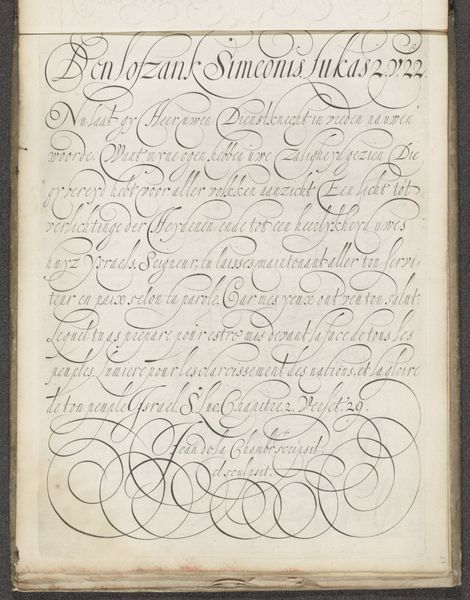 Den lofzank Simeonis lukas 2. v. 22.
Nu laat gy Heer uwen Dienstknecht in vreden na uwen
woorde. Want myne ogen hebben uwe Zaligheyd gezien Die
gy bereyd hebt voor aller volkken aanzicht Een licht tot
verlichtinge der Heydenen, ende tot een heerlykheyd uwes
huyz Ysraels. Seigneur, tu laisses maintenant aller ton servi-
teur en paix selon ta parole. Car mes yeux ont veu ton salut:
Lequel tu as preparé pour estre mis devant la face de tous les
peuples, Lumiere pour l'esclarcissement des nations, et la gloire
de ton peuple Ysrael. S. Luc. Chapitre. 2. Verset. 29.
Jean de la Chambr scripsit,
et sculpsit.